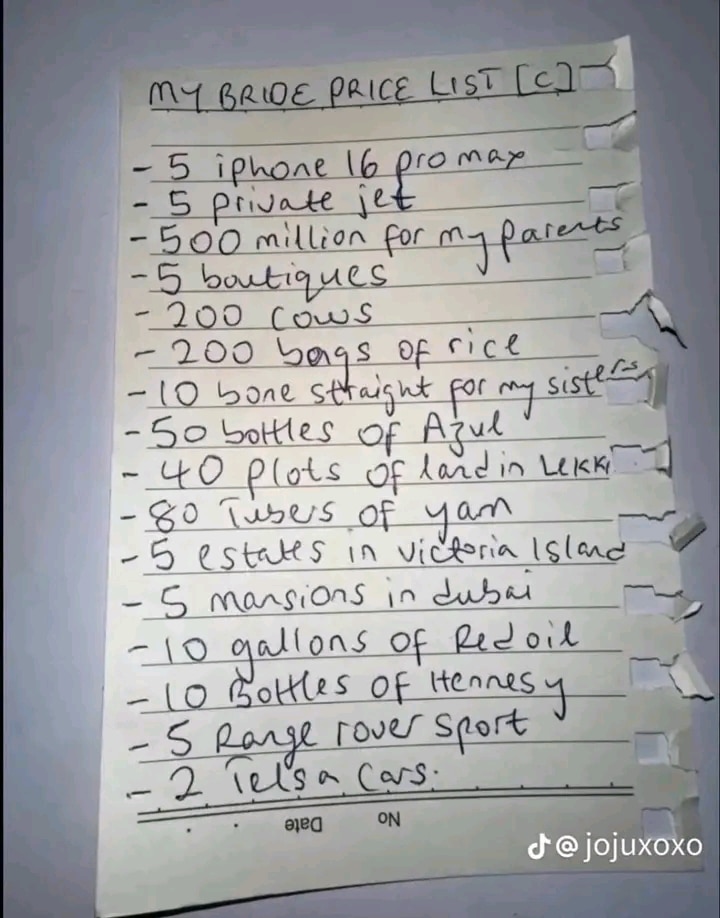 MY BRIDE PRICE LIST [C]
- 5 iphone 16 pro max
- 5 private jet
- 500 million for my parents
- 5 boutiques
- 200 cows
- 200 bags of rice
- 10 bone straight for my sisters
- 50 bottles of Azul
- 40 plots of land in Lekki
- 80 Tubers of yam
- 5 estates in victoria Island
- 5 mansions in dubai
- 10 gallons of Red oil
- 10 Bottles of Hennesy
- 5 Range rover sport
- 2 Telsa Cars.
No Date
@jojuxoxo